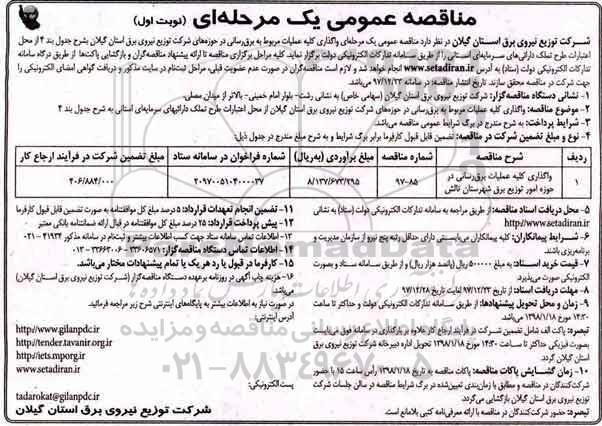 مناقصه عمومی یک مرحله‌ای (نوبت اول)
شرکت توزیع نیروی برق استان گیلان در نظر دارد مناقصه عمومی یک مرحله‌ای واگذاری کلیه عملیات مربوط به برق‌رسانی در حوزه‌های شرکت توزیع نیروی برق استان گیلان بشرح جدول بند ۴ از محل
اعتبارات طرح تملک دارائی‌های سرمایه‌ای استانی را از طریق سامانه تدارکات الکترونیکی دولت برگزار نماید. کلیه مراحل برگزاری مناقصه تا ارائه پیشنهاد مناقصه‌گران و بازگشایی پاکت‌ها از طریق درگاه سامانه
تدارکات الکترونیکی دولت (ستاد) به آدرس www.setadiran.ir انجام خواهد شد و لازم است مناقصه‌گران در صورت عدم عضویت قبلی، مراحل ثبت‌نام در سایت مذکور و دریافت گواهی امضای الکترونیکی را
جهت شرکت در مناقصه محقق سازند. تاریخ انتشار مناقصه: در سامانه ۹۷/۱۲/۲۳ می‌باشد.
۱- نشانی دستگاه مناقصه‌گزار: شرکت توزیع نیروی برق استان گیلان (سهامی خاص) به نشانی رشت- بلوار امام خمینی- بالاتر از میدان مصلی.
۲- موضوع مناقصه: واگذاری کلیه عملیات مربوط به برق‌رسانی در حوزه‌های شرکت توزیع نیروی برق استان گیلان از محل اعتبارات طرح تملک دارائیهای سرمایه‌ای استانی به شرح جدول بند ۴
۳- شرایط پرداخت: به شرح مندرج در برگ شرایط عمومی مناقصه می‌باشد.
۴- نوع و مبلغ تضمین شرکت در مناقصه: تضمین قابل قبول کارفرما برابر برگ شرایط و به شرح مبلغ مندرج در جدول ذیل:
ردیف شرح مناقصه شماره مناقصه مبلغ برآوردی (به‌ریال) شماره فراخوان در سامانه ستاد مبلغ تضمین شرکت در فرآیند ارجاع کار
۱ واگذاری کلیه عملیات برق‌رسانی در حوزه امور توزیع برق شهرستان تالش ۹۷-۸۵ ۸/۱۳۷/۶۷۳/۲۹۵ ۲۰۹۷۰۰۵۱۰۴۰۰۰۰۲۷ ۴۰۶/۸۸۴/۰۰۰
۵- محل دریافت اسناد مناقصه: از طریق مراجعه به سامانه تدارکات الکترونیکی دولت (ستاد) به نشانی
http://www.setadiran.ir
۶- شرایط پیمانکاران: کلیه پیمانکاران می‌بایستی دارای حداقل رتبه پنج نیرو از سازمان مدیریت و
برنامه‌ریزی باشند.
۷- قیمت خرید اسناد: به مبلغ ۵۰۰۰۰۰ ریال (پانصد هزار ریال) و از طریق سامانه ستاد و بصورت
الکترونیکی صورت می‌پذیرد.
۸- مهلت دریافت اسناد: از تاریخ ۹۷/۱۲/۲۳ لغایت تاریخ ۹۷/۱۲/۲۸
۹- زمان و محل تحویل پیشنهادها: از طریق سامانه تدارکات الکترونیکی دولت و حداکثر تا ساعت
۱۴:۳۰ مورخ ۱۳۹۸/۱/۱۸ می‌باشد.
تبصره: پاکت الف شامل تضمین شرکت در فرآیند ارجاع کار علاوه بر بارگذاری در سامانه فوق می‌بایست
بصورت فیزیکی حداکثر تا ساعت ۱۴:۳۰ مورخ ۱۳۹۸/۱/۱۸ تحویل اداره دبیرخانه شرکت توزیع نیروی برق
استان گیلان گردد.
۱۰- زمان گشایش پاکات مناقصه: پاکات مناقصه به تاریخ ۱۳۹۸/۱/۱۸ رأس ساعت ۱۵ با حضور
شرکت‌کنندگان در مناقصه و مطابق با زمان‌بندی تعیین‌شده در برگ شرایط مناقصه در سالن جلسات شرکت
توزیع نیروی برق استان گیلان بازگشایی می‌گردد.
تبصره: حضور شرکت‌کنندگان در مناقصه با ارائه معرفی‌نامه کتبی بلامانع است.
۱۱- تضمین انجام تعهدات قرارداد: ۵ درصد مبلغ کل موافقتنامه به صورت تضمین قابل قبول کارفرما
۱۲- پیش پرداخت قرارداد: ۲۵ درصد مبلغ کل موافقتنامه در قبال ارائه ضمانتنامه بانکی معتبر
۱۳- اطلاعات تماس سامانه ستاد جهت کسب اطلاعات بیشتر و ثبت‌نام در سامانه مذکور ۴۱۹۳۴-۰۲۱
۱۴- اطلاعات تماس دستگاه مناقصه‌گزار: ۳۳۶۰۶۵۷۱ - ۳۳۶۶۲۰۰۶-۰۱۳
۱۵- کارفرما در قبول یا رد هر یک یا تمام پیشنهادات مختار می‌باشد.
۱۶- هزینه چاپ آگهی در روزنامه برعهده دستگاه مناقصه‌گزار (شرکت توزیع نیروی برق استان گیلان)
می‌باشد.
در صورت نیاز به اطلاعات بیشتر به پایگاه‌های اینترنتی شرح زیر مراجعه فرمائید.
آدرس اینترنتی:
http//www.gilanpdc.ir
http://tender.tavanir.org.ir
http://iets.mporg.ir
www.setadiran.ir
پست الکترونیکی:
tadarokat@gilanpdc.ir
شرکت توزیع نیروی برق استان گیلان
پایگاه اطلاع رسانی مناقصه و مزایده
۰۲۱-۸۸۳۴۹۶۷۰-۵